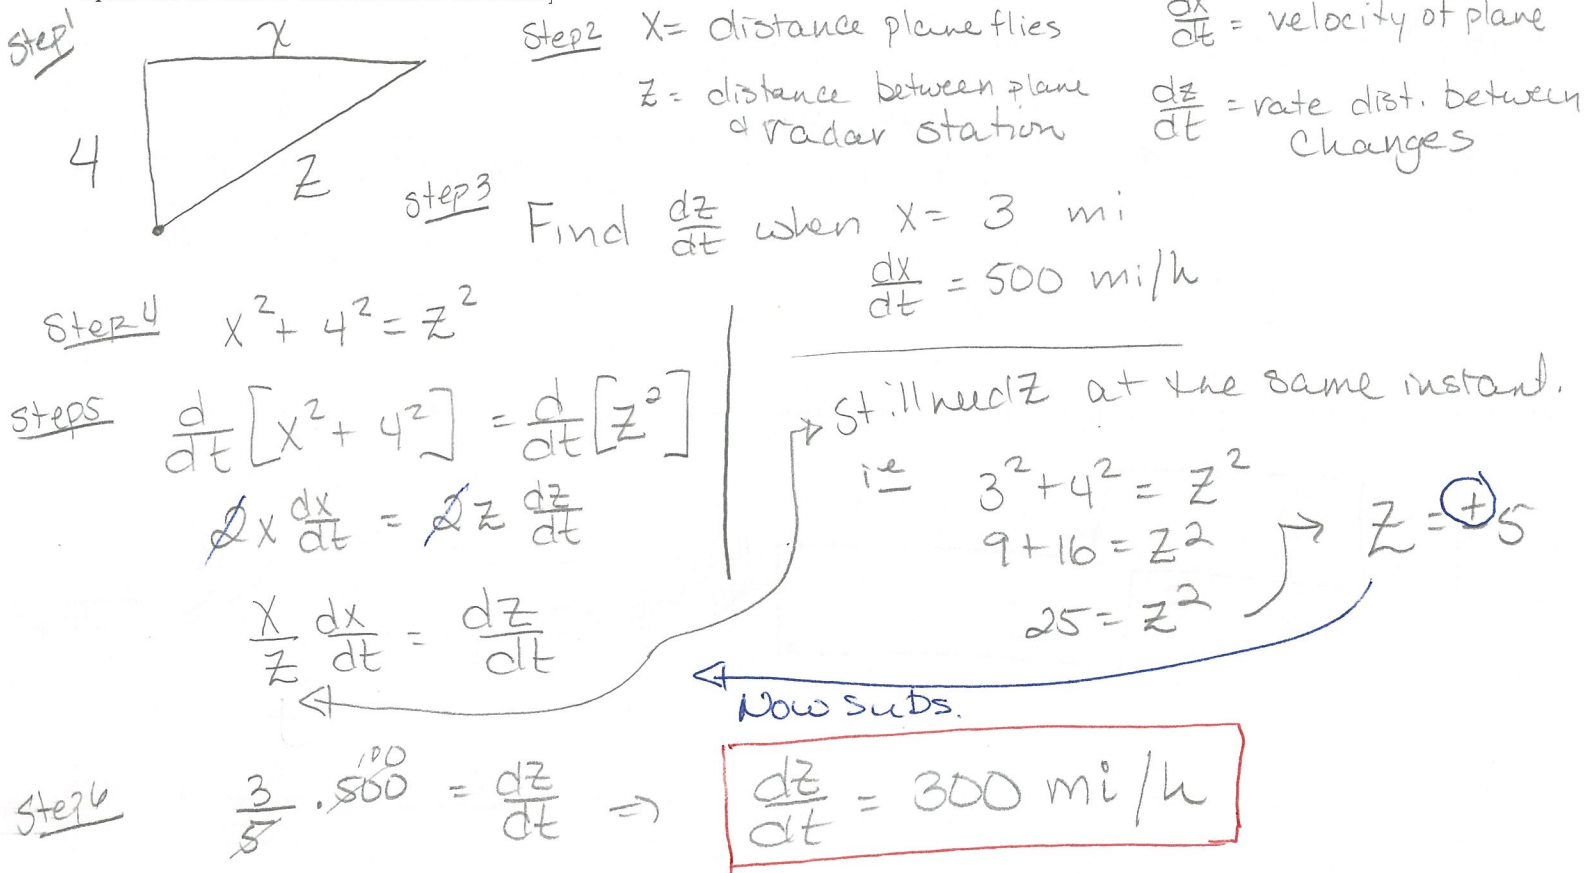 Step 1
x
4
z
Step 2 x = distance plane flies
z = distance between plane
& radar station
dx/dt = velocity of plane
dz/dt = rate dist. between
changes
Step 3 Find dz/dt when x = 3 mi
dx/dt = 500 mi/h
Step 4 x² + 4² = z²
Step 5 d/dt [x² + 4²] = d/dt [z²]
2x dx/dt = 2z dz/dt
x/z dx/dt = dz/dt
Still need z at the same instant.
ie 3² + 4² = z²
9 + 16 = z²
25 = z²
z = ±5
Now subs.
Step 6 3/5 · 500 = dz/dt ⇒
100
dz/dt = 300 mi/h